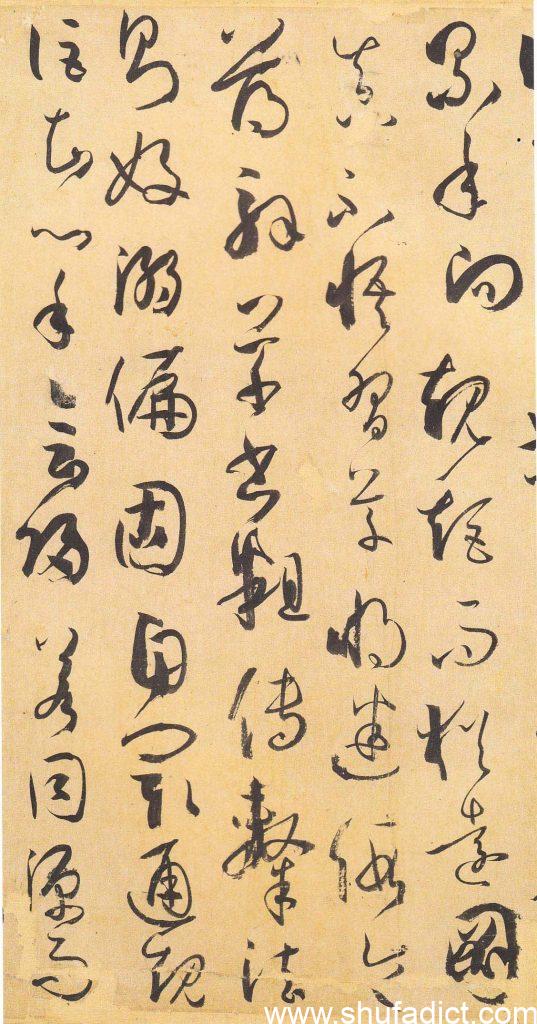 累年向規矩而猶遠圖
真不悟習草將迷假令
薄解草書粗傳隸法
則好溺偏固自閡通規
詎知心手會歸若同源而
www.shufadict.com